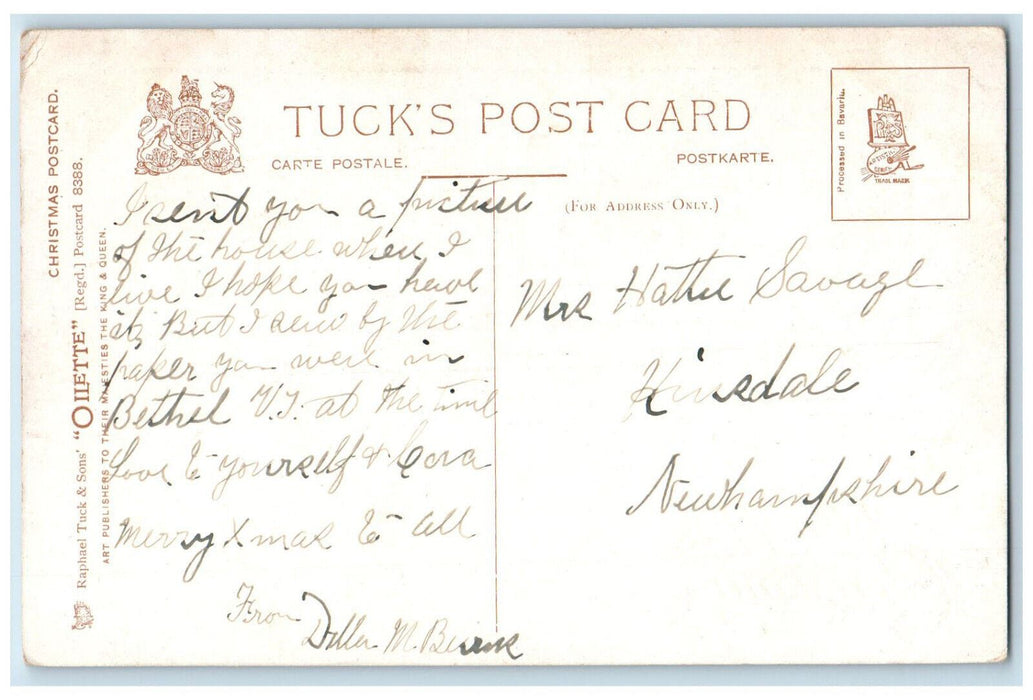 CHRISTMAS POSTCARD.
Raphael Tuck & Sons' "OILETTE" [Regd.] Postcard 8388.
ART PUBLISHERS TO THEIR MAJESTIES THE KING & QUEEN.
TUCK'S POST CARD
CARTE POSTALE.
POSTKARTE.
(FOR ADDRESS ONLY.)
Processed in Bavaria.
TRADE MARK
I sent you a picture
of the house when I
live I hope you have
it, But I seen by the
paper you were in
Bethel V.T. at the time
Love to yourself & Cora
Merry Xmas to all
From
M.
Mrs Hattie Savage
Hinsdale
Newhampshire